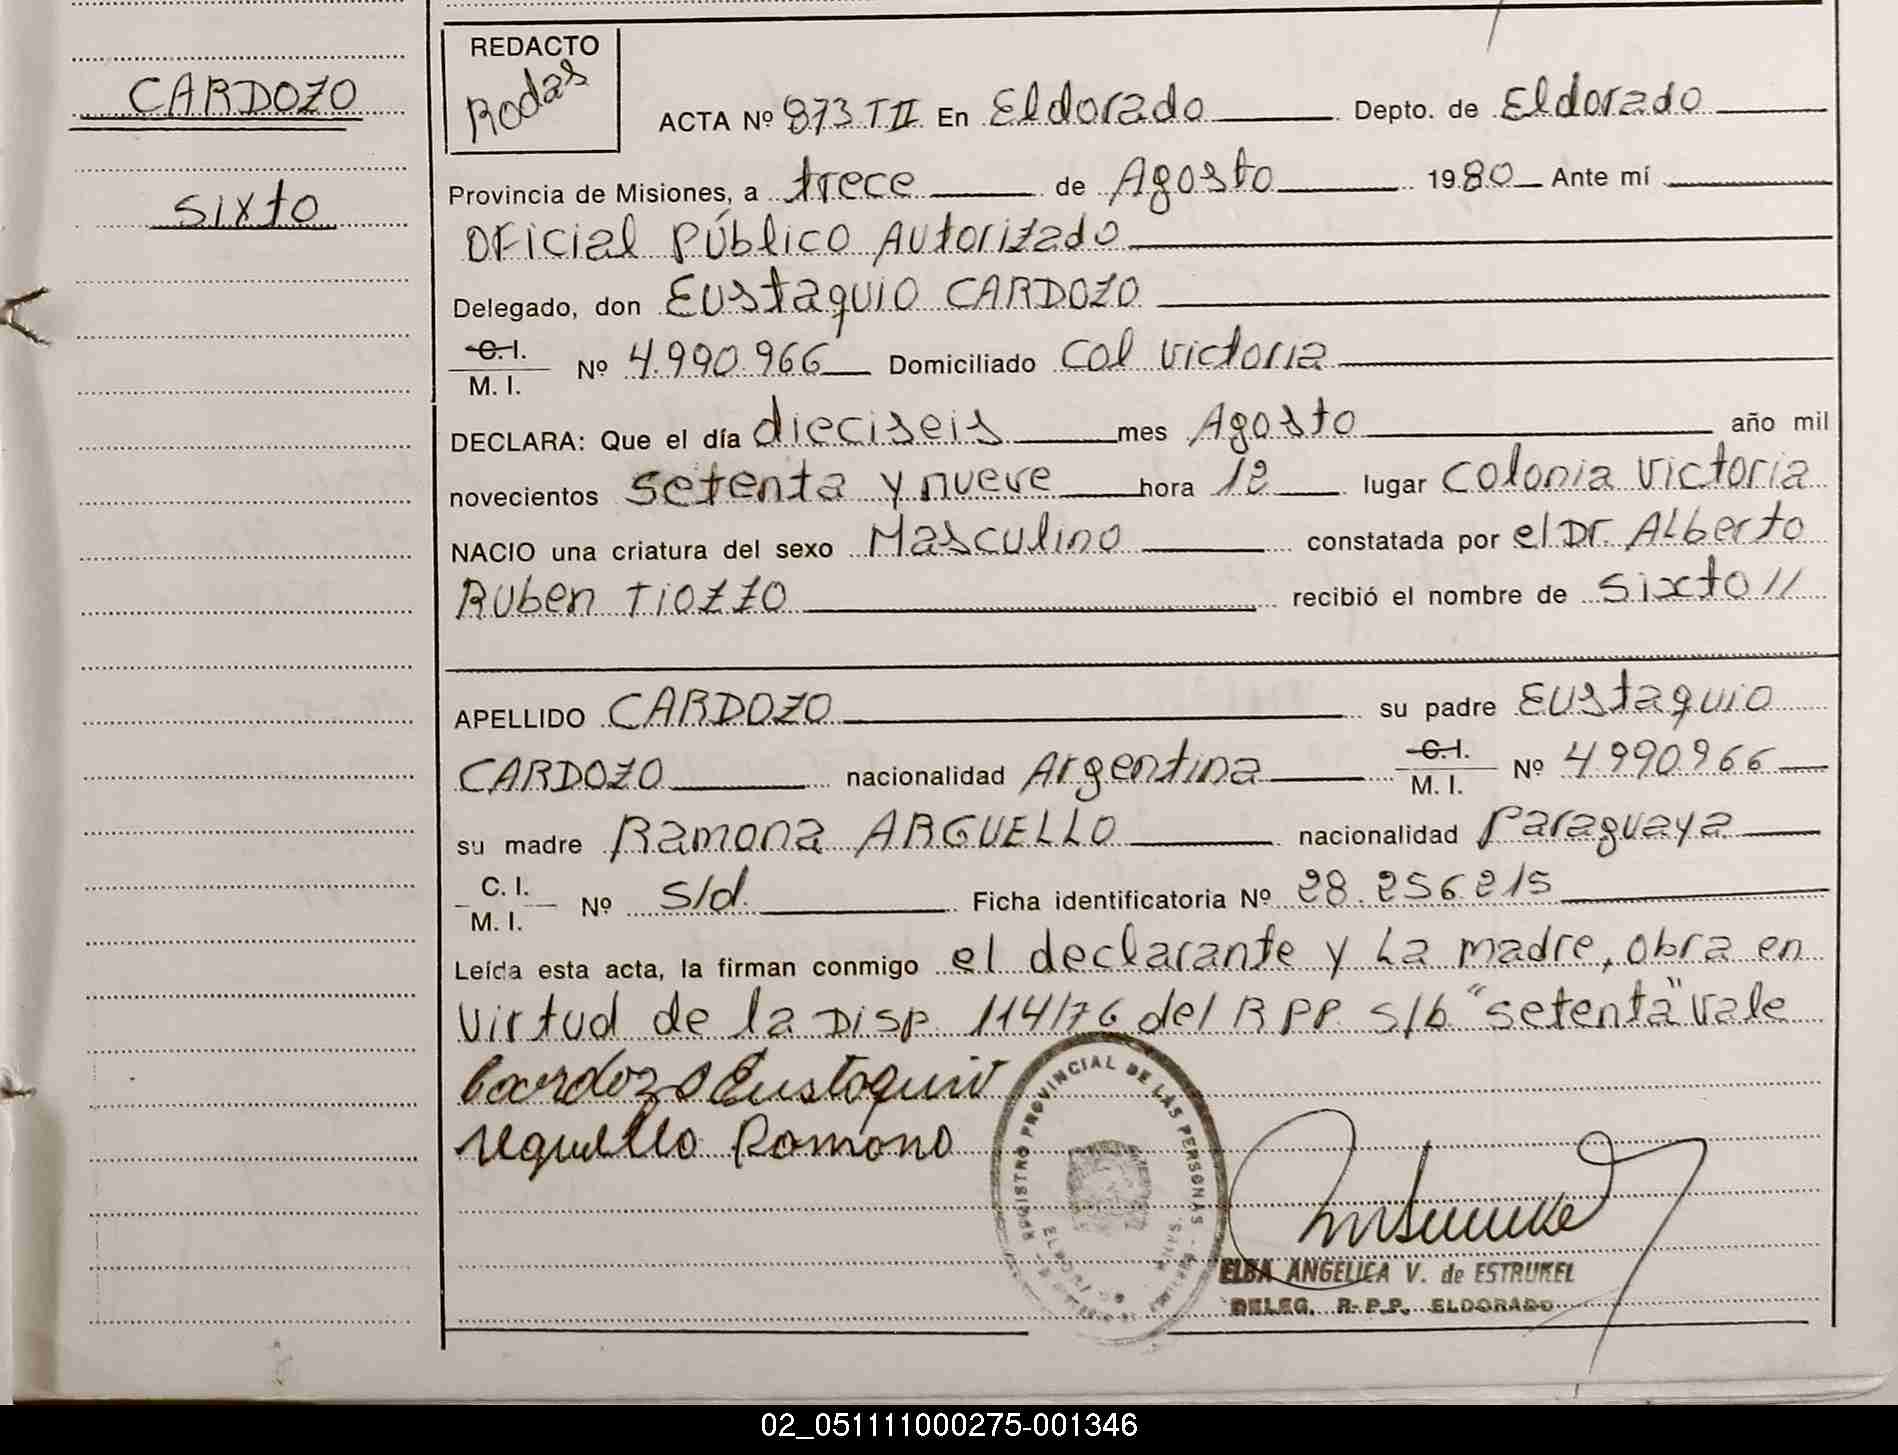 CARDOZO
Sixto
REDACTO
Rodas
ACTA Nº 873 T II En Eldorado Depto. de Eldorado
Provincia de Misiones, a trece de Agosto 1980 Ante mí
Oficial Público Autorizado
Delegado, don Eustaquio CARDOZO
C. I.
M. I. Nº 4.990.966 Domiciliado Col Victoria
DECLARA: Que el día dieciseis mes Agosto año mil
novecientos setenta y nueve hora 12 lugar Colonia Victoria
NACIO una criatura del sexo Masculino constatada por el Dr. Alberto
Ruben Tiozzo recibió el nombre de Sixto //
APELLIDO CARDOZO su padre Eustaquio
CARDOZO nacionalidad Argentina C. I. M. I. Nº 4990966
su madre Ramona ARGUELLO nacionalidad Paraguaya
C. I.
M. I. Nº s/d. Ficha identificatoria Nº 28.256.215
Leída esta acta, la firman conmigo el declarante y La madre, obra en
virtud de la Disp. 114/76 del R P P. s/b "setenta" vale
Cardozo Eustaquio
Arguello Ramona
REGISTRO PROVINCIAL DE LAS PERSONAS
ELDORADO
ELBA ANGELICA V. de ESTRUKEL
DELEG. R. P.P. ELDORADO
02_051111000275-001346